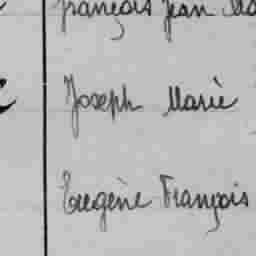 françois Jean Ma
Joseph Marie
Eugène François